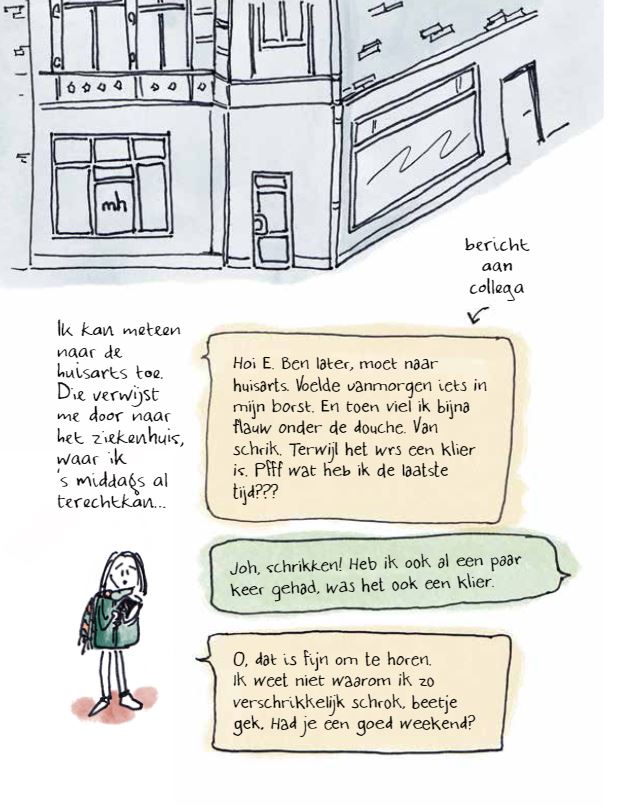 mh
bericht
aan
collega
Ik kan meteen
naar de
huisarts toe.
Die verwijst
me door naar
het ziekenhuis,
waar ik
's middags al
terechtkan...
Hoi E. Ben later, moet naar
huisarts. Voelde vanmorgen iets in
mijn borst. En toen viel ik bijna
flauw onder de douche. Van
schrik. Terwijl het wrs een klier
is. Pfff wat heb ik de laatste
tijd???
Joh, schrikken! Heb ik ook al een paar
keer gehad, was het ook een klier.
O, dat is fijn om te horen.
Ik weet niet waarom ik zo
verschrikkelijk schrok, beetje
gek. Had je een goed weekend?